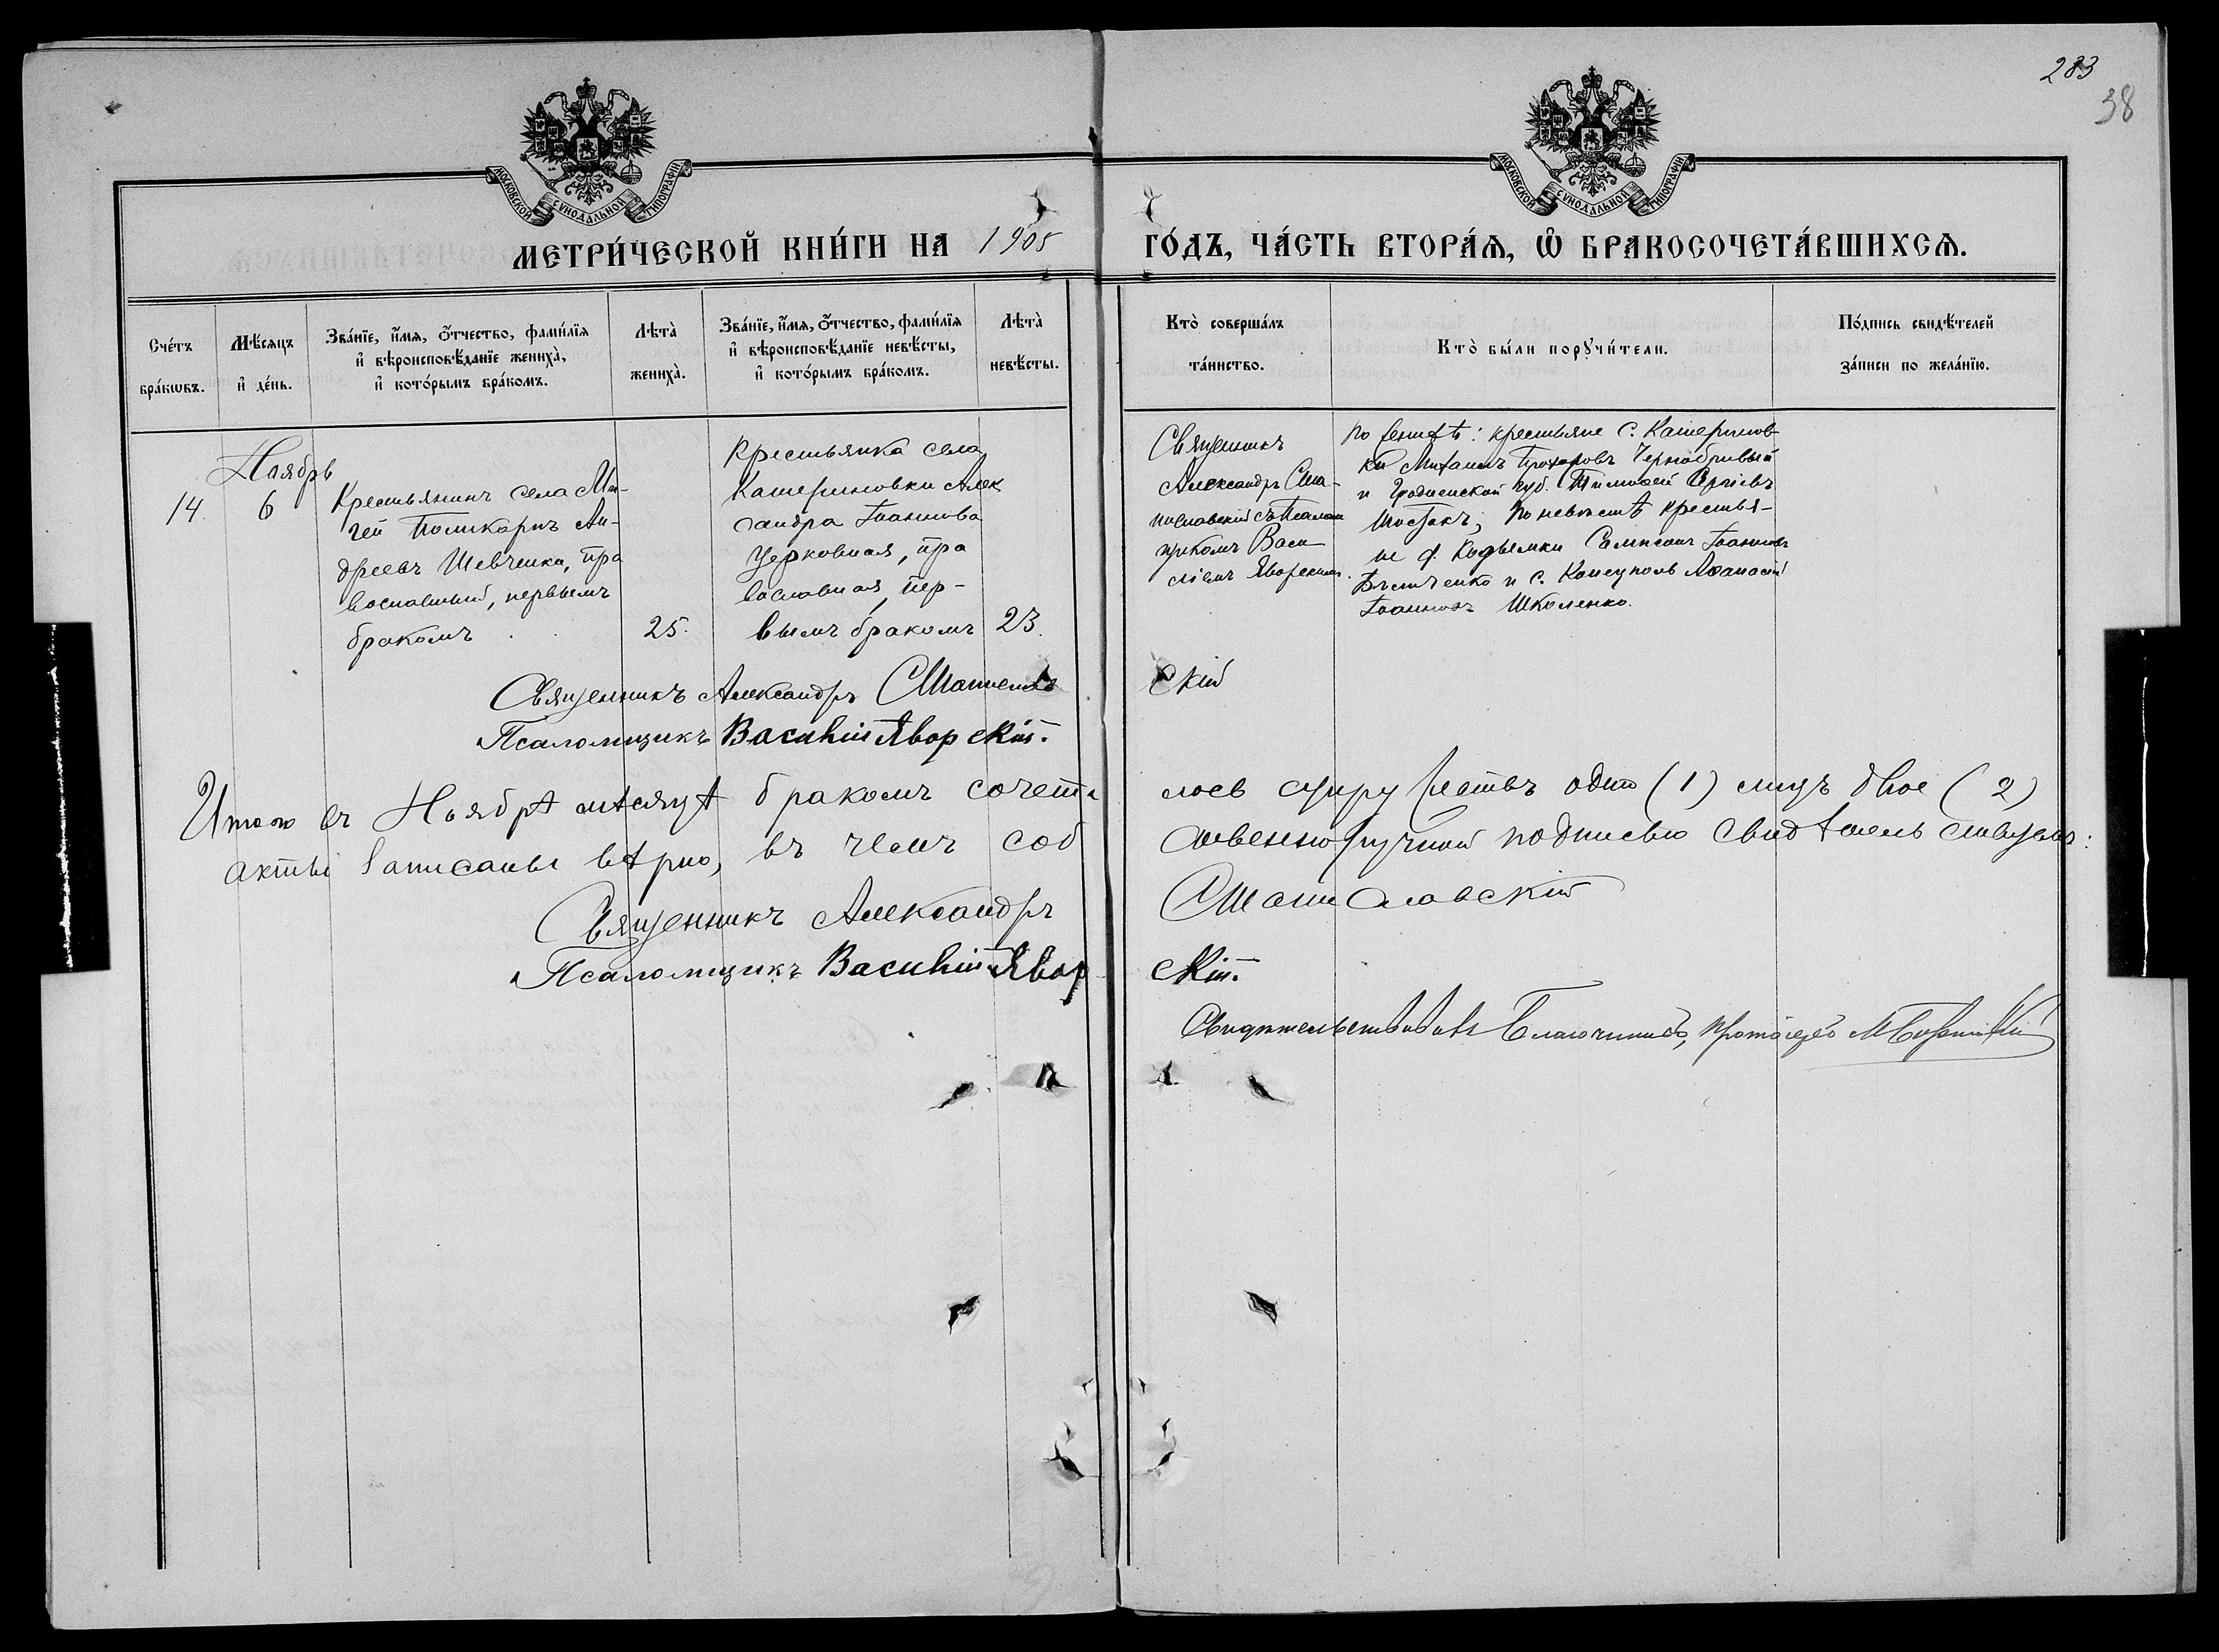 283
38
МОСКОВСКОЙ СѴНОДАЛЬНОЙ ТИПОГРАФІИ
МОСКОВСКОЙ СѴНОДАЛЬНОЙ ТИПОГРАФІИ
МЕТРИ́ЧЕСКОЙ КНИ́ГИ НА 1905 ГО́ДЪ, ЧА́СТЬ ВТОРА́Я, Ѡ БРАКОСОЧЕТА́ВШИХСЯ.
Сче́тъ
бра́кѡвъ.
Мѣ́сяцъ
и҆ де́нь.
Зва́нїе, и҆́мя, ѻ҆́тчество, фами́лїя
и҆ вѣроисповѣ́данїе жениха̀,
и҆ кото́рымъ бра́комъ.
Лѣта̀
жениха̀.
Зва́нїе, и҆́мя, ѻ҆́тчество, фами́лїя
и҆ вѣроисповѣ́данїе невѣ́сты,
и҆ кото́рымъ бра́комъ.
Лѣта̀
невѣ́сты.
Кто̀ соверша́лъ
та́инство.
Кто̀ бы́ли порꙋчи́тели.
По́дпись свидѣ́телей
за́писи по жела́нїю.
14.
Ноябрь
6
Крестьянинъ села Ми-
гей Поликарпъ Ан-
дреевъ Шевченко, пра
вославный, первымъ
бракомъ
25.
Крестьянка села
Катериновки Алек
сандра Іоаннова
Церковная, пра
вославная, пер-
вымъ бракомъ
23.
Священникъ
Александръ Ста-
ниславскій съ Псалом
щикомъ Васи
ліемъ Яворскимъ.
по женихѣ: крестьяне с. Катеринов-
ки Михаилъ Прохоровъ Чернобривый
и Гродненской губ. Тимоѳей Сергіевъ
по невѣстѣ крестья-
не Самсонъ Іоанновъ
и с. Аѳанасій
Іоанновъ Школенко.
Священникъ Александръ Станиславскій
Псаломщикъ Василій Яворскій.
Итого въ Ноябрѣ мѣсяцѣ бракомъ сочеталось супружествъ одно (1) лицъ двое (2)
акты записаны вѣрно, въ чемъ собственноручной подписью свидѣтельствуемъ:
Священникъ Александръ Станиславскій
Псаломщикъ Василій Яворскій.
Свидѣтельствовалъ Благочинный, протоіерей М